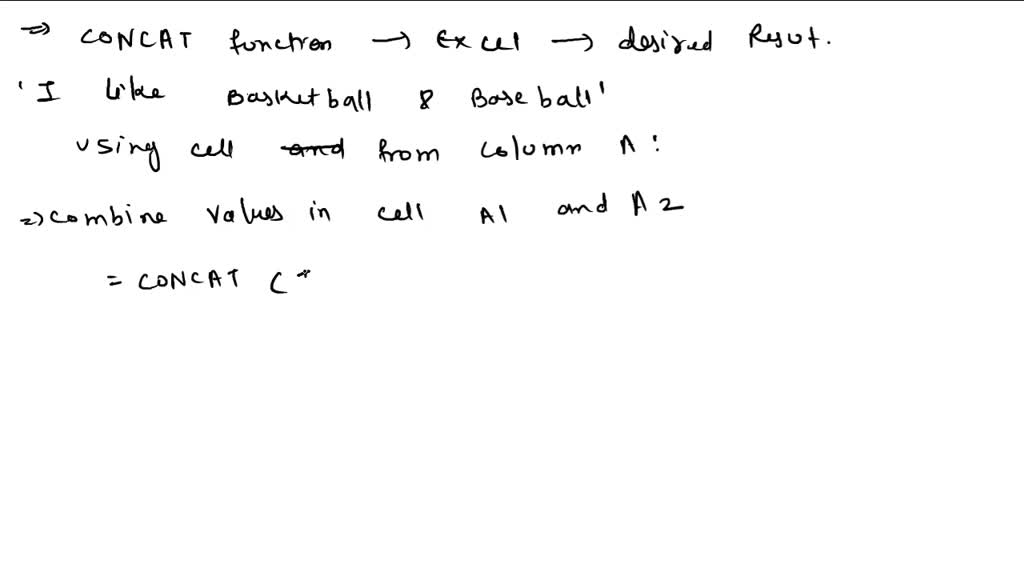 => CONCAT function → Excel → desired Resut.
'I like Basketball & Baseball'
using cell and from column A:
=> combine values in cell A1 and A2
= CONCAT ( "